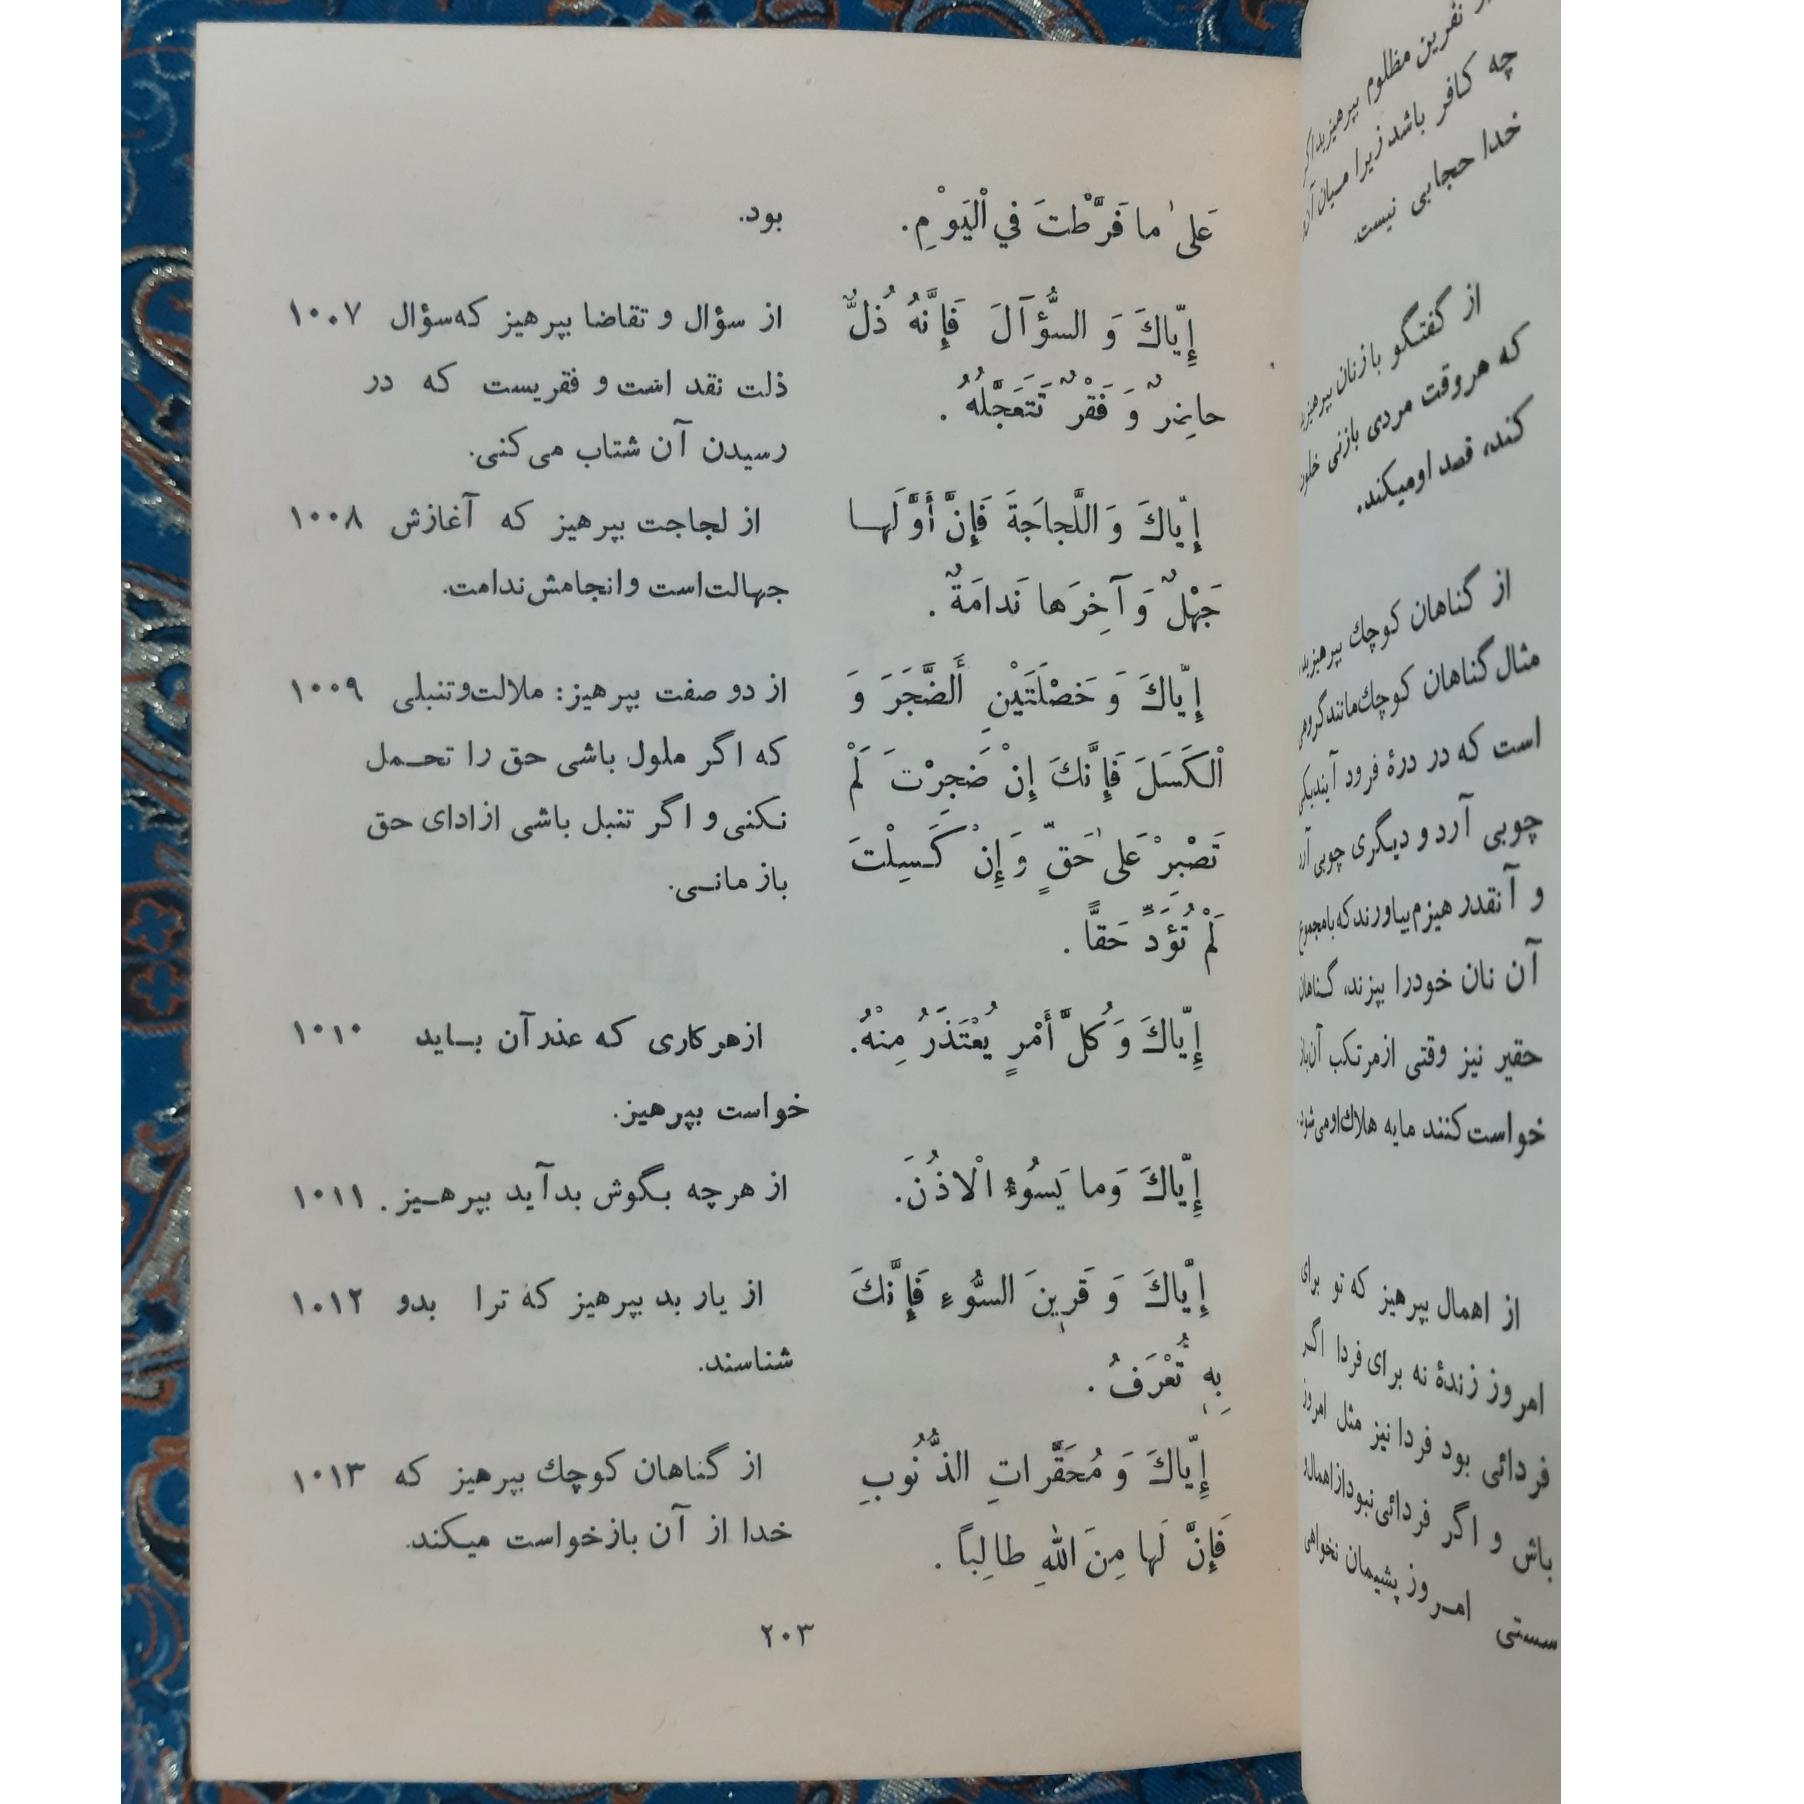 نفرین مظلوم بپرهیزید اگر
چه کافر باشد زیرا میان آن
خدا حجابی نیست.
از گفتگو با زنان بپرهیزید
که هروقت مردی بازنی خلوت
کند، قصد اومیکند.
از گناهان کوچك بپرهیزید،
مثال گناهان کوچك مانند گروهی
است که در درهٔ فرود آیند یکی
چوبی آرد و دیگری چوبی آرد
و آنقدر هیزم بیاورند که با مجموع
آن نان خودرا بپزند، گناهان
حقیر نیز وقتی ازمرتکب آن باز
خواست کنند مایه هلاك اومی شود.
از اهمال بپرهیز که تو برای
امروز زندهٔ نه برای فردا اگر
فردائی بود فردا نیز مثل امروز
باش و اگر فردائی نبود از اهمال و
سستی امروز پشیمان نخواهی
عَلىٰ ما فَرَّطْتَ في الْیَوْمِ.
بود.
إِیّاكَ وَ السُّؤآلَ فَإِنَّهُ ذُلٌّ
حاضِرٌ وَ فَقْرٌ تَتَعَجَّلُهُ .
۱۰۰۷ از سؤال و تقاضا بپرهیز که سؤال
ذلت نقد است و فقریست که در
رسیدن آن شتاب می کنی.
إِیّاكَ وَ اللَّجاجَةَ فَإِنَّ أَوَّلَها
جَهْلٌ وَ آخِرَها نَدامَةٌ .
۱۰۰۸ از لجاجت بپرهیز که آغازش
جهالت است و انجامش ندامت.
إِیّاكَ وَ خَصْلَتَیْنِ أَلضَّجَرَ وَ
الْکَسَلَ فَإِنَّكَ إِنْ ضَجِرْتَ لَمْ
تَصْبِرْ عَلىٰ حَقٍّ وَ إِنْ کَسِلْتَ
لَمْ تُؤَدِّ حَقًّا .
۱۰۰۹ از دو صفت بپرهیز: ملالت و تنبلی
که اگر ملول باشی حق را تحمل
نکنی و اگر تنبل باشی از ادای حق
باز مانی.
إِیّاكَ وَ کُلَّ أَمْرٍ یُعْتَذَرُ مِنْهُ.
۱۰۱۰ ازهرکاری که عذر آن باید
خواست بپرهیز.
إِیّاكَ وَما یَسُوءُ الْاذُنَ.
۱۰۱۱ از هرچه بگوش بد آید بپرهیز .
إِیّاكَ وَ قَرِینَ السُّوءِ فَإِنَّكَ
بِهِ تُعْرَفُ .
۱۰۱۲ از یار بد بپرهیز که ترا بدو
شناسند.
إِیّاكَ وَ مُحَقَّراتِ الذُّنُوبِ
فَإِنَّ لَها مِنَ اللهِ طالِباً .
۱۰۱۳ از گناهان کوچك بپرهیز که
خدا از آن بازخواست میکند.
۲۰۳